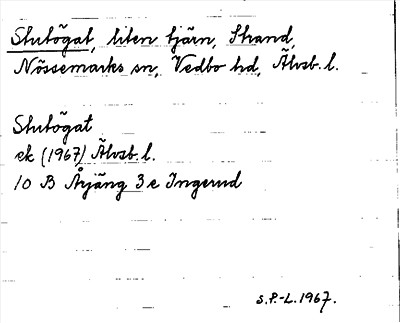 Stutögat, liten tjärn, Strand,
Nössemarks sn, Vedbo hd, Älvsb. l.
Stutögat
ek (1967) Älvsb. l.
10 B Årjäng 3 e Ingerud
S.P.-L. 1967.